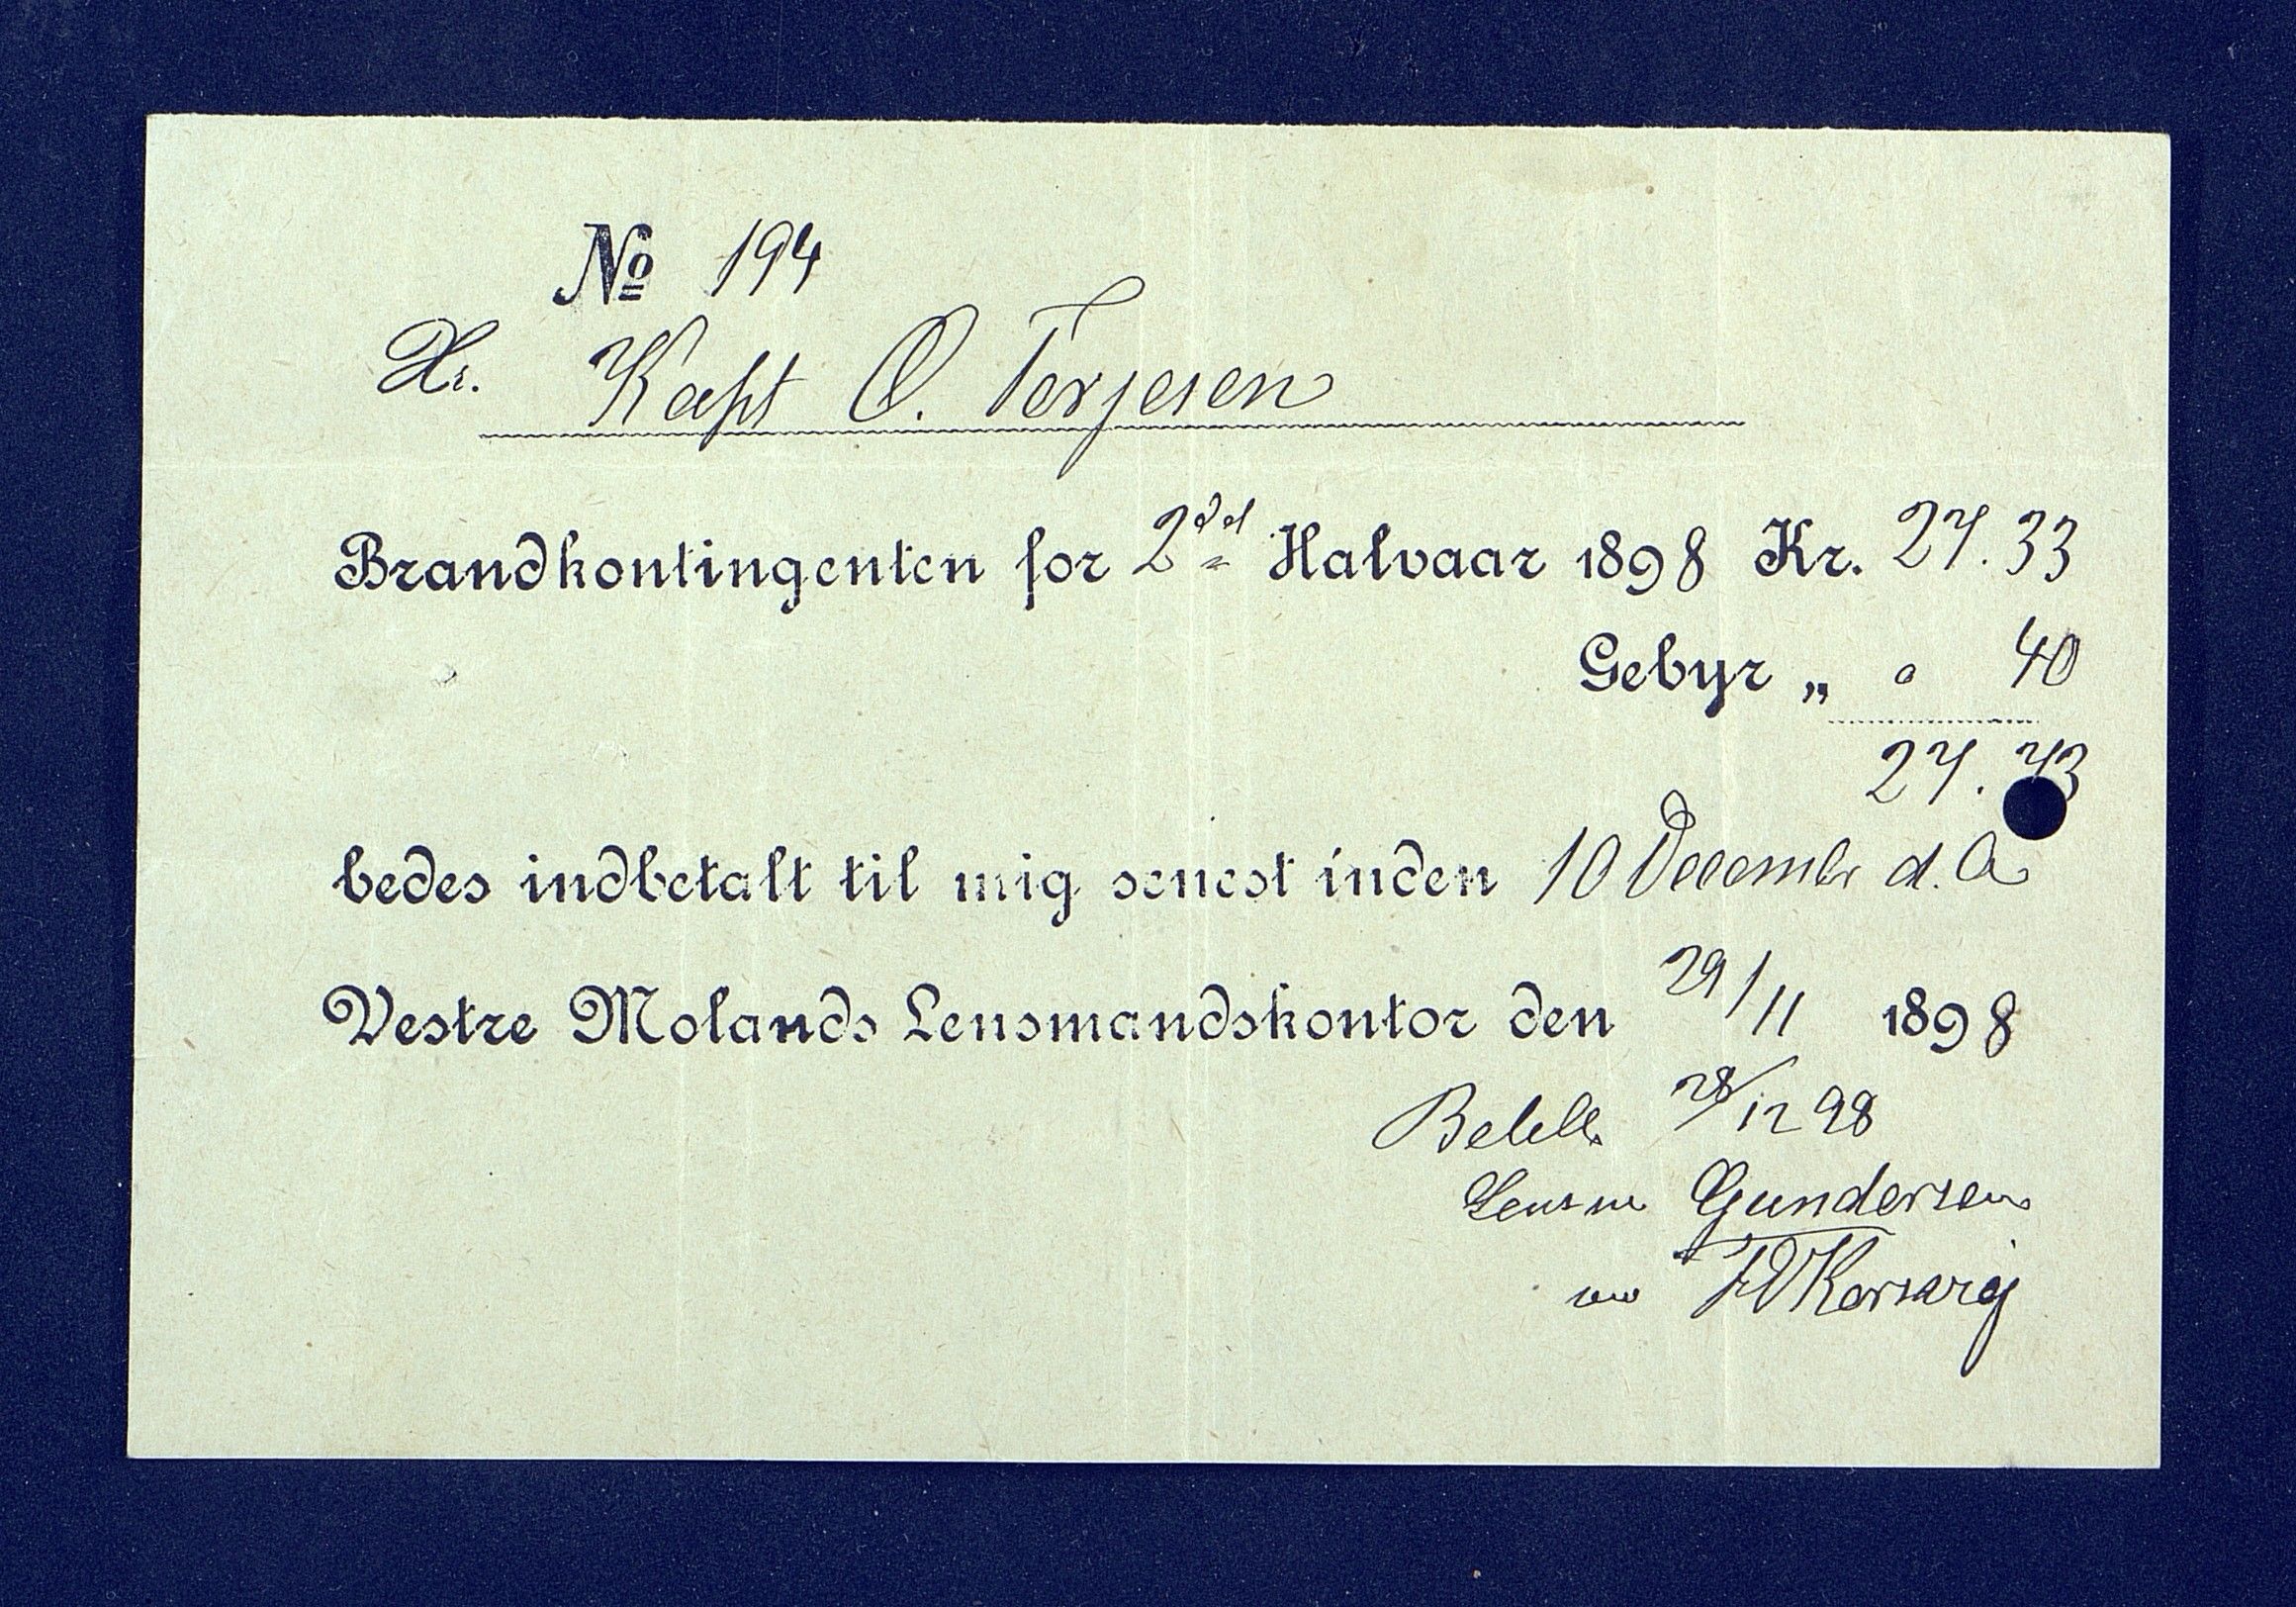 № 194
Hr. Kapt O. Terjesen
Brandkontingenten for 2det Halvaar 1898 Kr. 27.33
Gebyr „ " 40
27.73
bedes indbetalt til mig senest inden 10 Decembr d. A
Vestre Molands Lensmandskontor den 29/11 1898
28/12 98
Lensm Gundersen